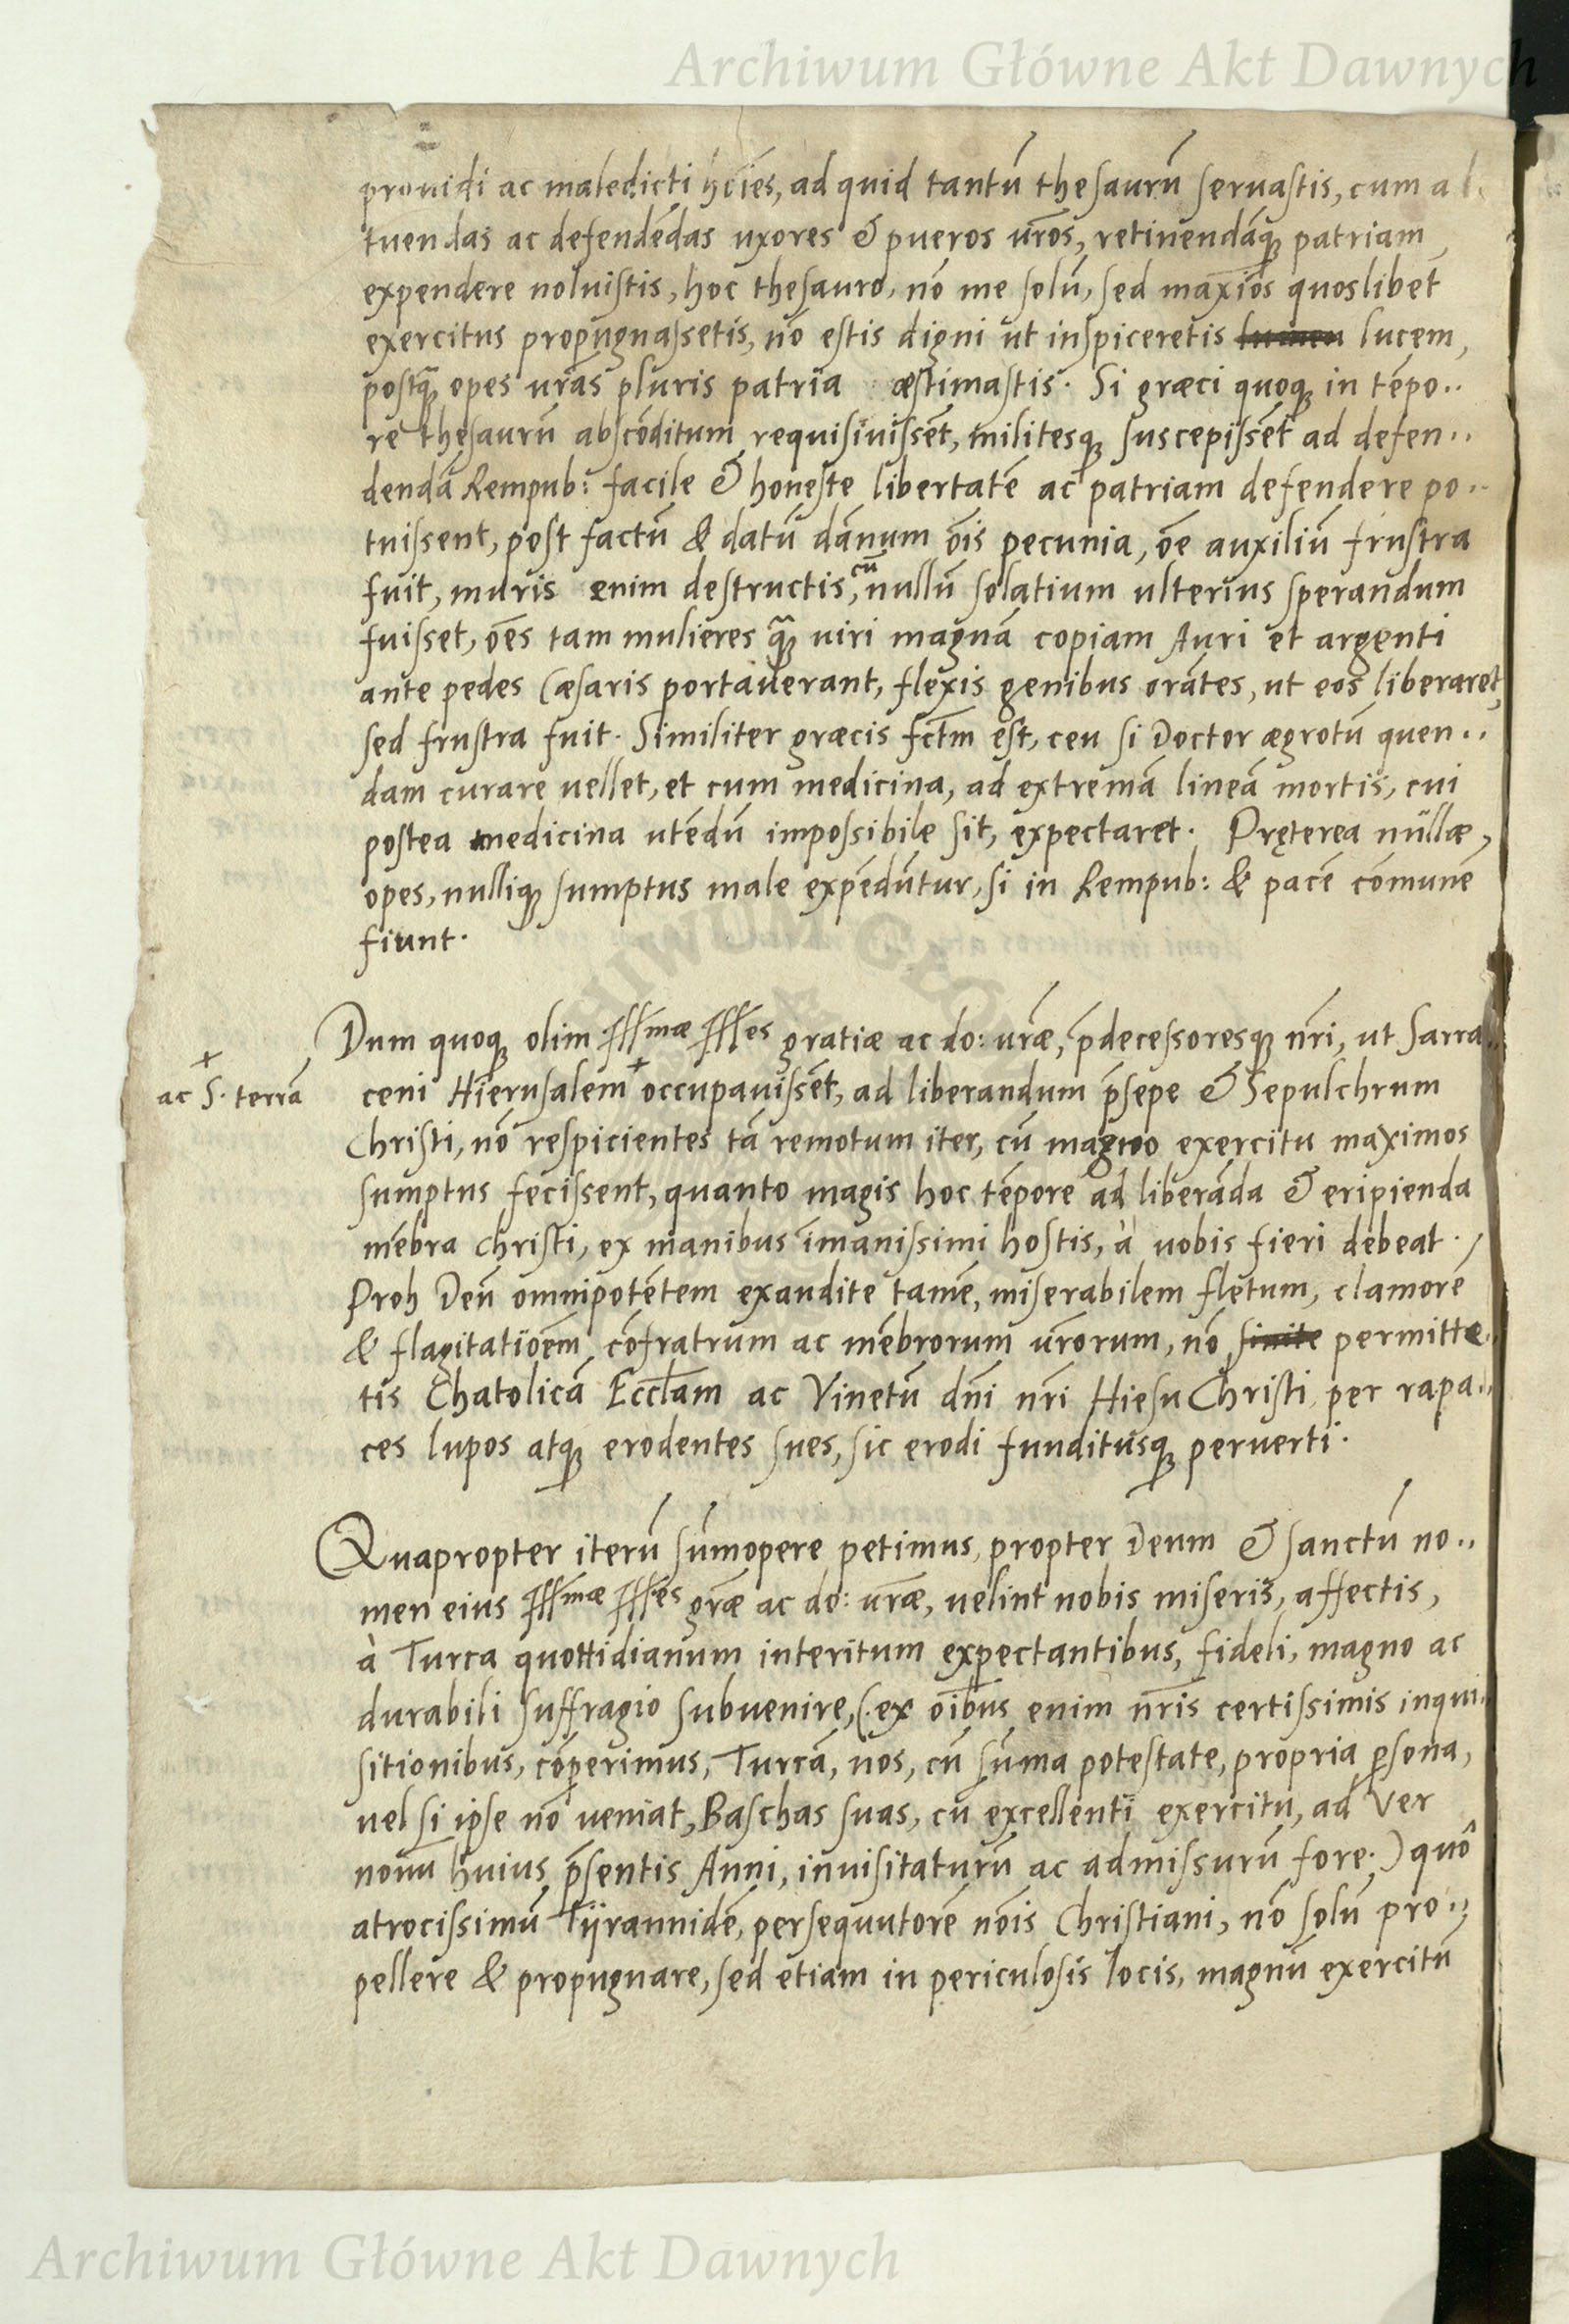 Archiwum Główne Akt Dawnych
prouidi ac maledicti hoı̄es, ad quid tantū thesaurū seruastis, cum a
tuendas ac defendēdas uxores & pueros ur̄os, retinendāq; patriam
expendere noluistis, hoc thesauro, nō me solū, sed maxiōs quoslibet
exercitus propugnassetis, nō estis digni ut inspiceretis lumen lucem,
postq̄ opes ur̄as pluris patria æstimastis. Si græci quoq; in tēpo..
re thesaurū abscōditum requisiuissēt, militesq; suscepissēt ad defen..
dendā Rempub: facile & honeste libertatē ac patriam defendere po..
tuissent, post factū & datū dānum ōis pecunia, ōe auxiliū frustra
fuit, muris enim destructis, cū nullū solatium ulterius sperandum
fuisset, ōes tam mulieres q̄ uiri magnā copiam Auri et argenti
ante pedes Cæsaris portauerant, flexis genibus orātes, ut eos liberaret,
sed frustra fuit. Similiter græcis fctm̄ est, ceu si Doctor ægrotū quen..
dam curare uellet, et cum medicina, ad extremā lineā mortis, cui
postea medicina utēdū impossibile sit, expectaret. Pręterea nullæ,
opes, nulliq; sumptus male expēdūtur, si in Rempub: & pacē cōmunē
fiunt.
Dum quoq; olim Illmæ Illes gratiæ ac do: ur̄æ, p̄decessoresq; nr̄i, ut Sarra..
+
ac S. terrā
ceni Hierusalem + occupauissēt, ad liberandum p̄sepe & Sepulchrum
Christi, nō respicientes tā remotum iter, cū magno exercitu maximos
sumptus fecissent, quanto magis hoc tēpore ad liberāda & eripienda
mēbra christi, ex manibus īmanissimi hostis, à uobis fieri debeat.
Proh Deū omnipotētem exaudite tamē, miserabilem fletum, clamorē
& flagitatiōem cōfratrum ac mēbrorum ur̄orum, nō sinite permitte..
tis Chatolicā Eccl̄am ac Vinetū dn̄i nr̄i Hiesu Christi per rapa..
ces lupos atq; erodentes sues, sic erodi funditusq; peruerti.
Quapropter iterū sūmopere petimus, propter Deum & sanctū no..
men eius Illmæ Illes gr̄æ ac do: ur̄æ, uelint nobis miseris, affectis,
à Turca quottidianum interitum expectantibus, fideli, magno ac
durabili suffragio subuenire, (.ex oı̄bus enim nr̄is certissimis inqui..
sitionibus, cōperimus, Turcā, nos, cū sūma potestate, propria p̱sona,
uel si ipse nō ueniat, Baschas suas, cū excellenti exercitu, ad Ver
nouū huius p̄sentis Anni, inuisitaturū ac admissurū fore.) quô
atrocissimū Tÿrannidē, persequutorē nōis Christiani, nō solū pro..
pellere & propugnare, sed etiam in periculosis locis, magnū exercitū
Archiwum Główne Akt Dawnych